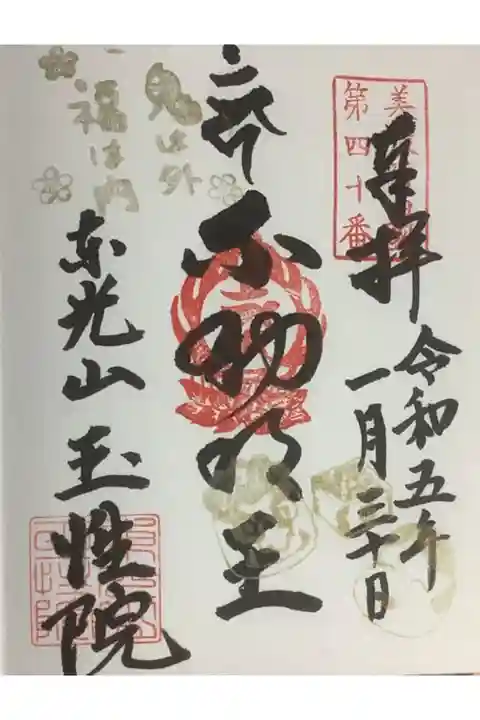 美
第四十番
奉拝
令和五年
一月三十日
不動明王
鬼は外
福は内
東光山 玉性院